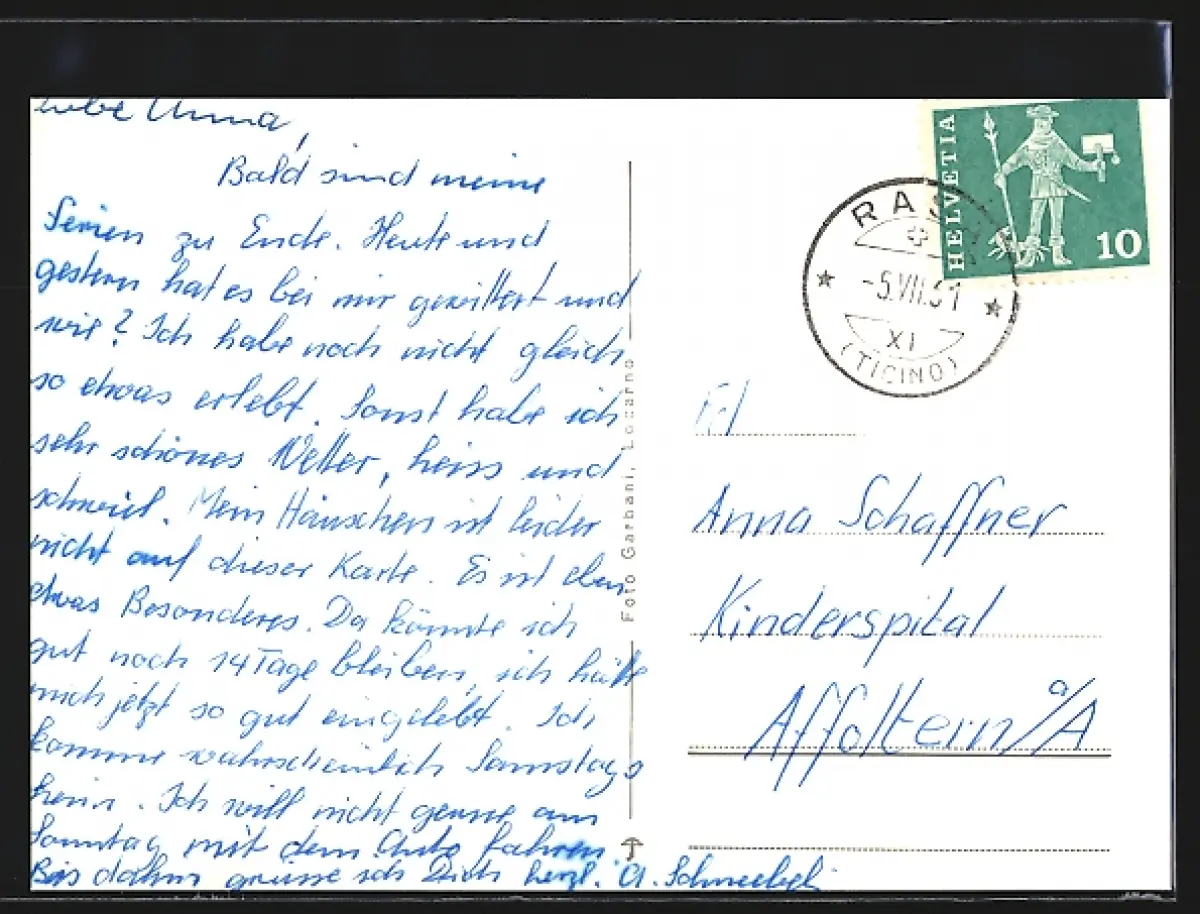 Liebe Anna,
Bald sind meine
Ferien zu Ende. Heute und
gestern hat es bei mir gewittert und
wie? Ich habe noch nicht gleich
so etwas erlebt. Sonst habe ich
sehr schönes Wetter, heiss und
schwül. Mein Häuschen ist leider
nicht auf dieser Karte. Es ist eben
etwas Besonderes. Da könnte ich
gut noch 14 Tage bleiben, ich hätte
mich jetzt so gut eingelebt. Ich
komme wahrscheinlich Samstags
heim. Ich will nicht gerne am
Sonntag mit dem Auto fahren.
Bis dahin grüsse ich Dich herzl. A.
Foto Garbani, Locarno
HELVETIA
10
RAS
-5.VII.61
XI
(TICINO)
Frl
Anna Schaffner
Kinderspital
Affoltern a/A